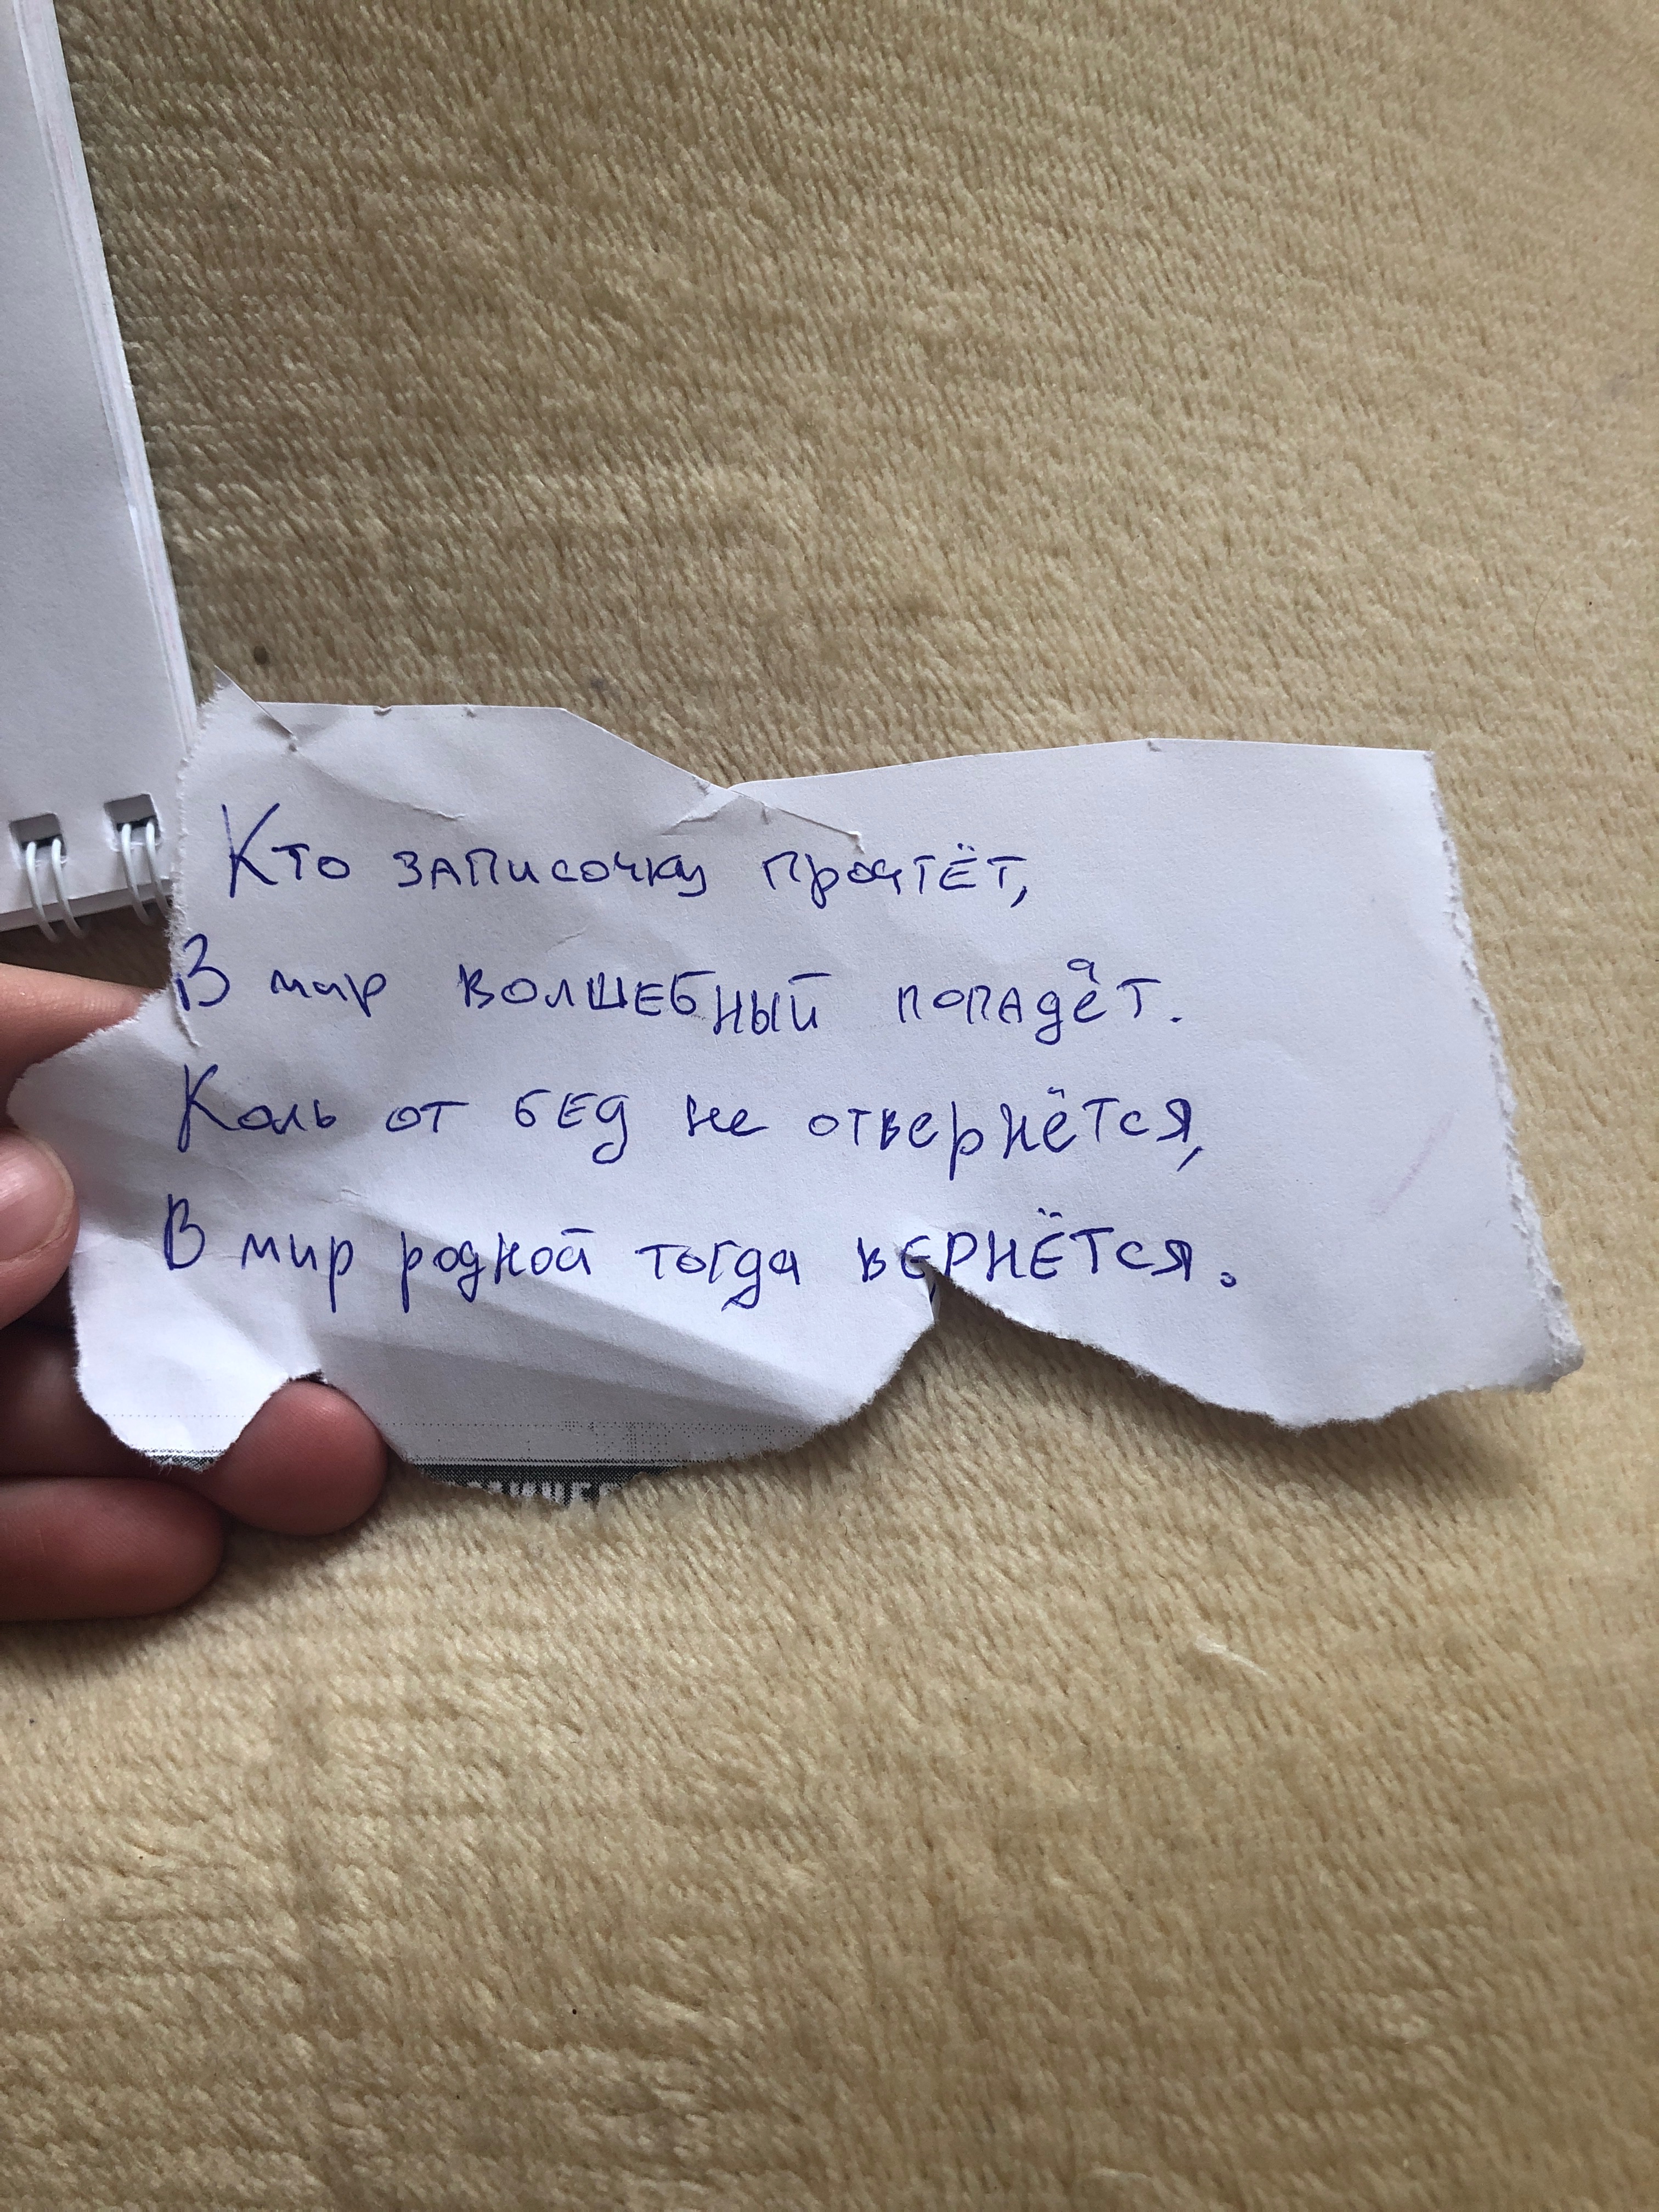 Кто записочку прочтёт,
В мир волшебный попадёт.
Коль от бед не отвернётся,
В мир родной тогда вернётся.